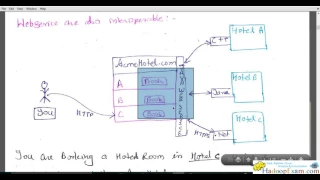 Webservice are also interoperable :-
AcmeHotel.com
A
Book
B
Book
C
Book
You
HTTP
C++
Hotel A
Java
Hotel B
HTTP
.Net
Hotel C
You are Booking a Hotel Room in Hotel C
HadoopExam.com